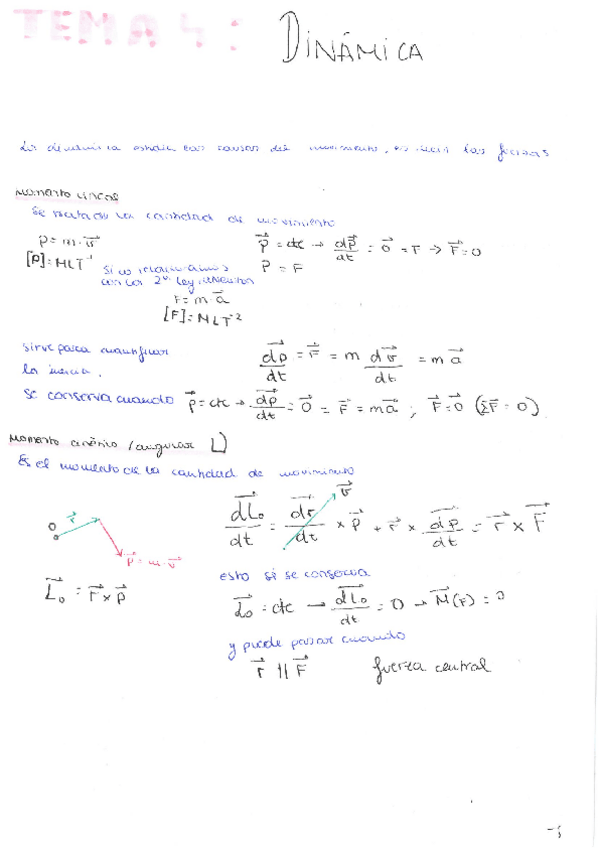 TEMA 4: DINÁMICA
La dinámica estudia las causas del movimiento, es decir las fuerzas
Momento lineal
Se trata de la cantidad de movimiento
p = m · v⃗
[P] = MLT⁻¹
p⃗ = cte → dp⃗/dt = 0⃗ = F → F⃗ = 0
P = F
Si lo relacionamos
con la 2ª Ley
F = m · a⃗
[F] = MLT⁻²
sirve para cuantificar
la inercia.
dp⃗/dt = F⃗ = m dv⃗/dt = m a⃗
se conserva cuando p⃗ = cte → dp⃗/dt = 0⃗ = F⃗ = m a⃗ ; F⃗ = 0⃗ (ΣF⃗ = 0)
Momento cinético / angular L⃗
Es el momento de la cantidad de movimiento
O
r⃗
p⃗ = m · v⃗
L⃗₀ = r⃗ × p⃗
v⃗
dL⃗₀/dt = dr⃗/dt × p⃗ + r⃗ × dp⃗/dt = r⃗ × F⃗
esto si se conserva
L⃗₀ = cte → dL⃗₀/dt = 0 → M⃗(F) = 0
y puede pasar cuando
r⃗ || F⃗ fuerza central